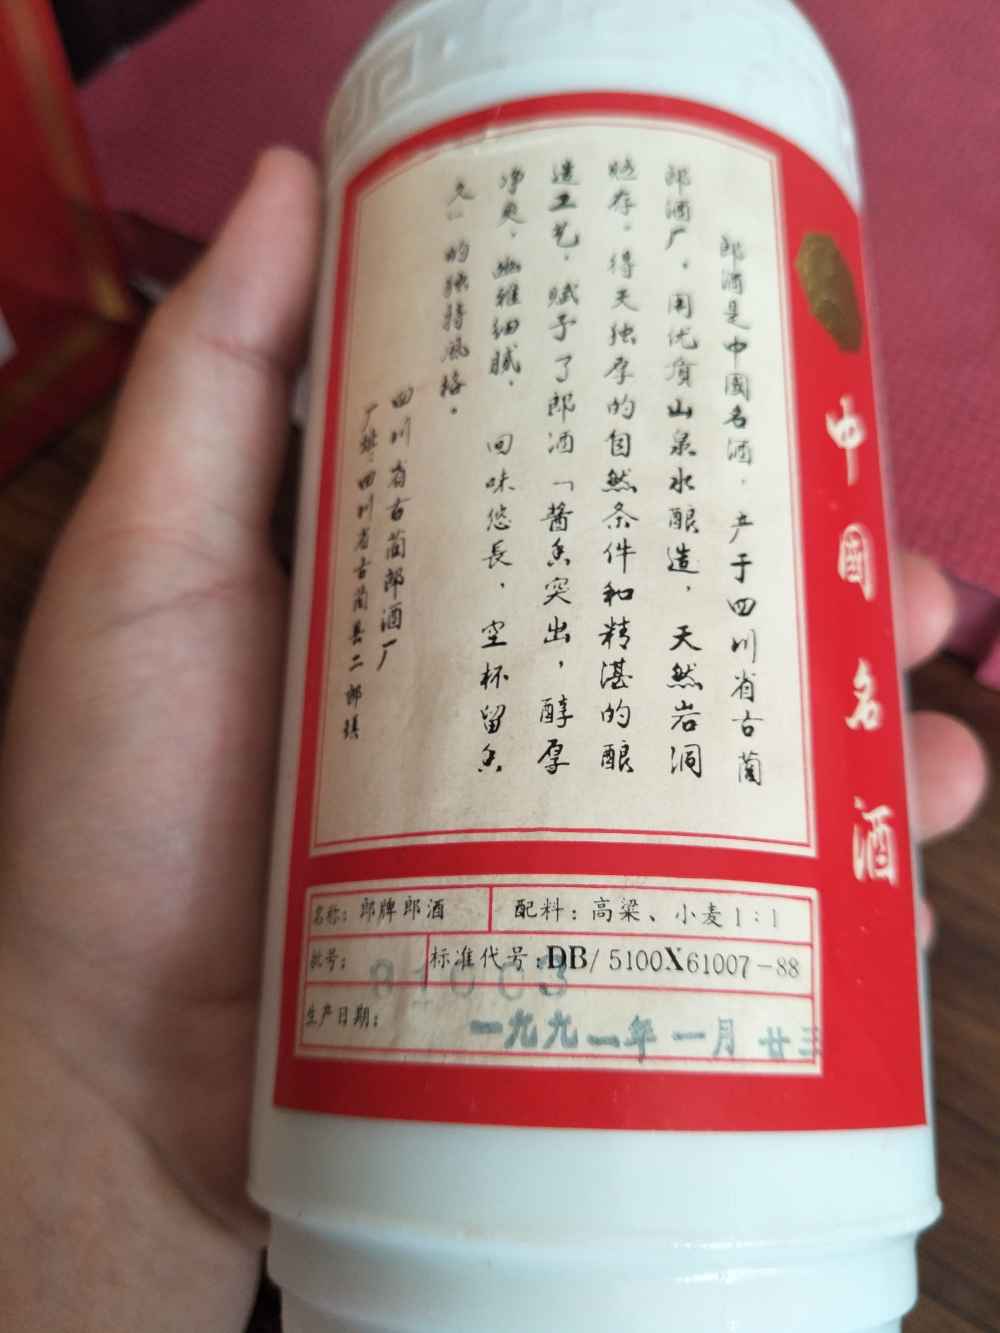 中國名酒
郎酒是中國名酒．产于四川省古蔺
郎酒厂．用优质山泉水酿造，天然岩洞
贮存．得天独厚的自然条件和精湛的酿
造工艺．赋予了郎酒「酱香突出，醇厚
净爽．幽雅细腻． 回味悠長．空杯留香
久」的独特风格．
四川省古蔺郎酒厂
厂址：四川省古蔺县二郎镇
名称：郎牌郎酒 配料：高粱、小麦1：1
批号： 标准代号：DB/5100X61007-88
生产日期：一九九一年一月廿三